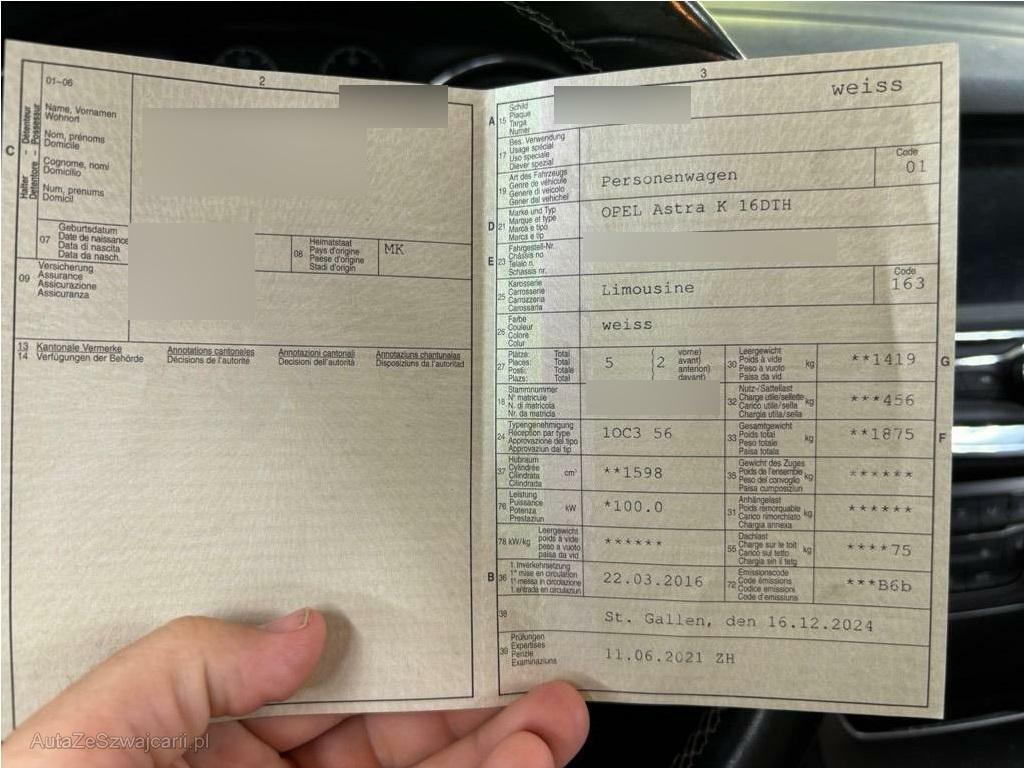 2
01–06
C
Halter - Détenteur
Detentore - Possessur
Name, Vornamen
Wohnort
Nom, prénoms
Domicile
Cognome, nomi
Domicilio
Num, prenums
Domicil
07
Geburtsdatum
Date de naissance
Data di nascita
Data da nasch.
08
Heimatstaat
Pays d'origine
Paese d'origine
Stadi d'origin
MK
09
Versicherung
Assurance
Assicurazione
Assicuranza
13 Kantonale Vermerke
14 Verfügungen der Behörde
Annotations cantonales
Décisions de l'autorité
Annotazioni cantonali
Decisioni dell'autorità
Annotaziuns chantunalas
Disposiziuns da l'autoritad
3
A 15
Schild
Plaque
Targa
Numer
weiss
17
Bes. Verwendung
Usage spécial
Uso speciale
Diever spezial
19
Art des Fahrzeugs
Genre de véhicule
Genere di veicolo
Gener dal vehichel
Personenwagen
Code
01
D 21
Marke und Typ
Marque et type
Marca e tipo
Marca e tip
OPEL Astra K 16DTH
E 23
Fahrgestell-Nr.
Châssis no
Telaio n.
Schassis nr.
25
Karosserie
Carrosserie
Carrozzeria
Carossaria
Limousine
Code
163
26
Farbe
Couleur
Colore
Colur
weiss
27
Plätze: Total
Places: Total
Posti: Totale
Plazs: Total
5
(2
vorne)
avant)
anteriori)
davant)
30
Leergewicht
Poids à vide
Peso a vuoto
Paisa da vid
kg
**1419
G
18
Stammnummer
N° matricule
N. di matricola
Nr. da matricla
32
Nutz-/Sattellast
Charge utile/sellette
Carico utile/sella
Chargia utila/sella
kg
***456
24
Typengenehmigung
Réception par type
Approvazione del tipo
Approvaziun dal tip
1OC3 56
33
Gesamtgewicht
Poids total
Peso totale
Paisa totala
kg
**1875
F
37
Hubraum
Cylindrée
Cilindrata
Cilindrada
cm³
**1598
35
Gewicht des Zuges
Poids de l'ensemble
Peso del convoglio
Paisa cumposiziun
kg
******
76
Leistung
Puissance
Potenza
Prestaziun
kW
*100.0
31
Anhängelast
Poids remorquable
Carico rimorchiato
Chargia annexa
kg
******
78 kW/kg
Leergewicht
poids à vide
peso a vuoto
paisa da vid
******
55
Dachlast
Charge sur le toit
Carico sul tetto
Chargia sin il tetg
kg
****75
B 36
1. Inverkehrsetzung
1re mise en circulation
1a messa in circolazione
1. entrada en circulaziun
22.03.2016
72
Emissionscode
Code émissions
Codice emissioni
Code d'emissiuns
***B6b
38
St. Gallen, den 16.12.2024
39
Prüfungen
Expertises
Perizie
Examinaziuns
11.06.2021 ZH
AutaZeSzwajcarii.pl